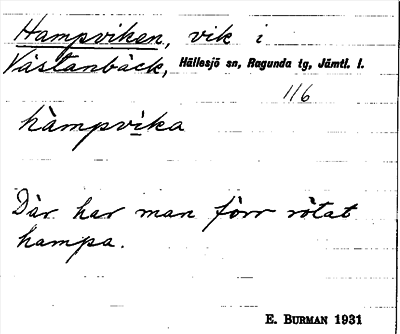 Hampviken, vik i
Västanbäck, Hällesjö sn, Ragunda tg, Jämtl. l.
116
hàmpvika
Där har man förr rötat
hampa.
E. BURMAN 1931